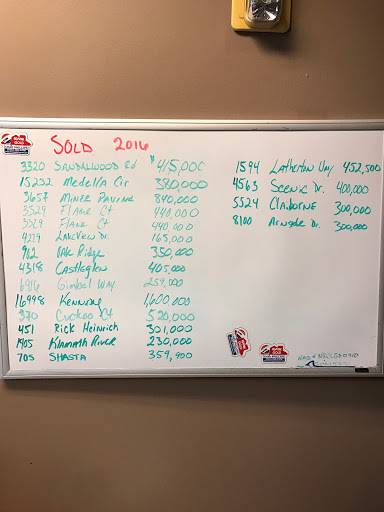 SOLD 2016
3320 SANDALWOOD Rd $415,000
15232 Medella Cir 380,000
3657 MINER 840,000
3529 Flame Ct 440,000
3529 Flame Ct 440,000
4229 LAKEVIEW Dr. 165,000
912 OAK Ridge 350,000
4318 Castleglen 405,000
6916 Gimbal Way 259,000
16998 KENNRDE 1,600,000
370 Cuckoo Ct 520,000
451 Rick Heinrich 301,000
1905 KlAmath RiVER 230,000
705 SHASTA 359,900
1594 Latherton Way 452,500
4563 Scenic Dr. 400,000
5524 ClAIBORNE 300,000
8100 Dr. 300,000